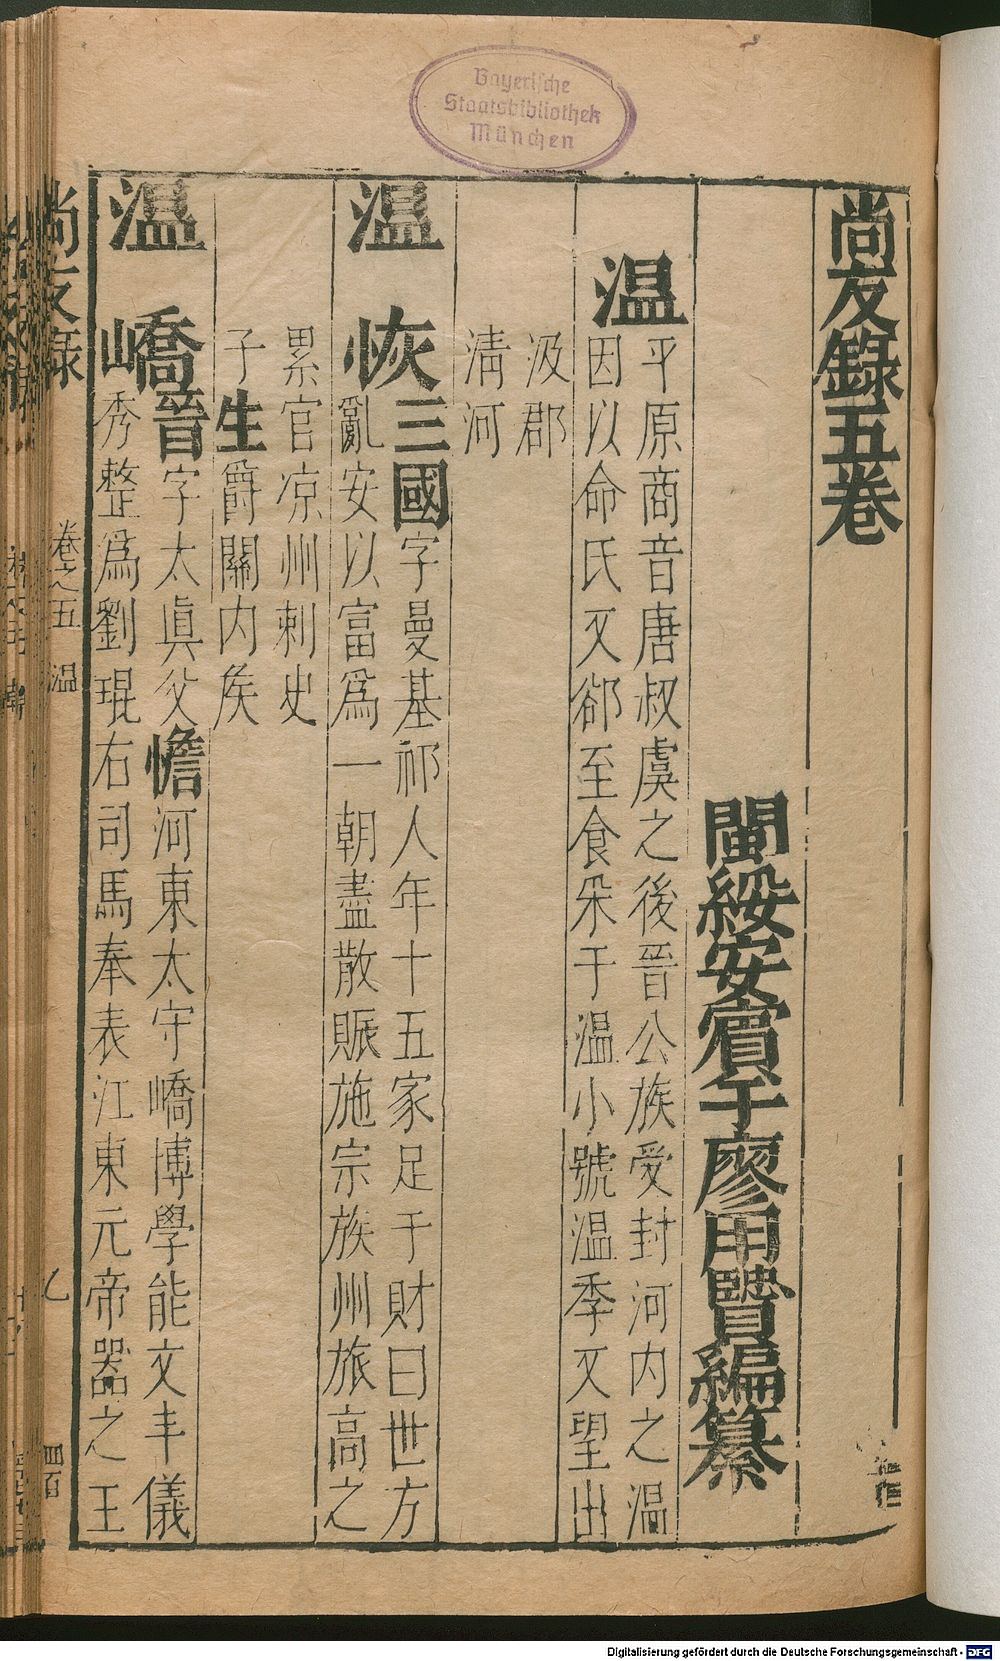 Bayerische
Staatsbibliothek
München
尚友錄五卷
閩綏安賓于廖用賢編纂
溫
平原商音唐叔虞之後晉公族受封河内之溫
因以命氏又郤至食采于溫小號溫季又望出
汲郡
淸河
溫恢三國字曼基祁人年十五家足于財曰世方
亂安以富爲一朝盡散賑施宗族州旅高之
累官凉州刺史
子生爵關内侯
溫嶠晉字太眞父憺河東太守嶠博學能文丰儀
秀整爲劉琨右司馬奉表江東元帝器之王
尚友錄
卷之五
溫
四百
Digitalisierung gefördert durch die Deutsche Forschungsgemeinschaft - DFG